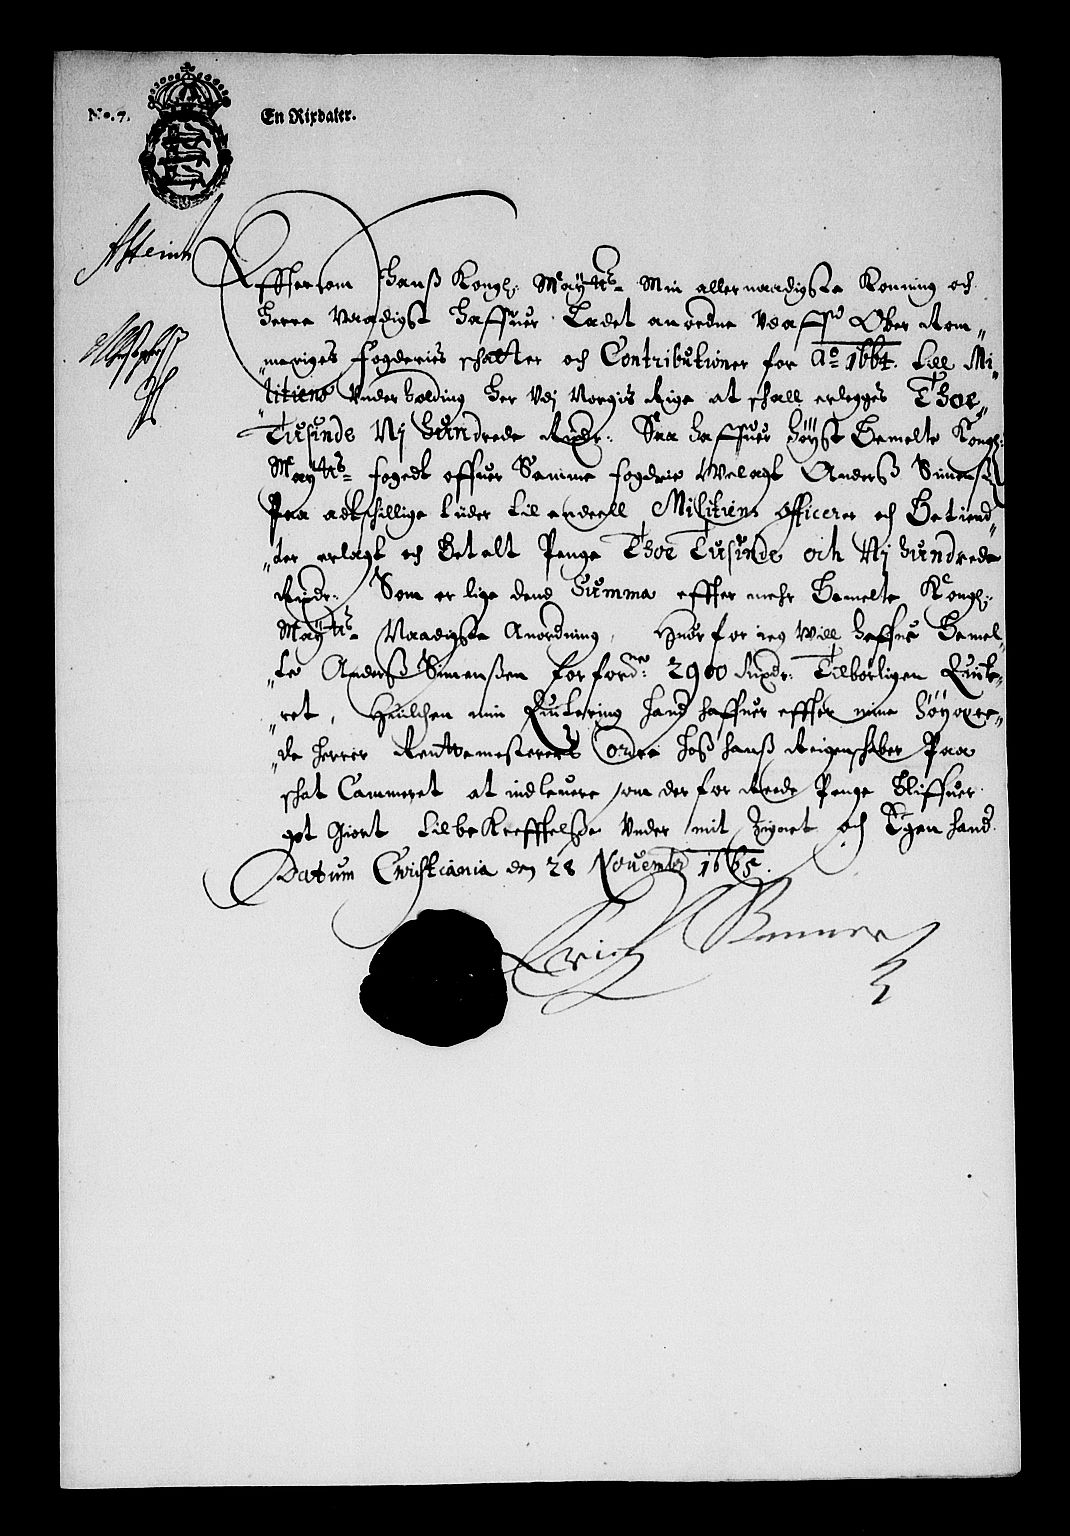 No. 7. En Rixdaler.
Effttersom Hanß Kongl: Maÿtts Min allernaadigste Konning och
Herre Naadigst Haffuer Ladet anordne Vdaff Ober Rom„
„meriges fogderies schatter och Contributioner for Ao 1664. till Mi„
„litiens Vnderholding Her Vdj Norgis Rige at schall erlegges Thoe„
Tusinde Nj Hundrede Rixdr: Saa haffuer Høyst Bemelte Kongl:
Maÿtts fogedt offuer Samme fogderie Welagt Anderß Simensß
Paa adtschillige tider til endeell Militiens officerer och Betiend„
„ter erlagt och Betalt Penge Thoe Tusinde och Nj hundrede
Rixdr: Som er lige dend Summa effter mehr Bemelte Kongl:
Maÿtts Naadigste Anordning, Huorfor ieg Will haffue Bemel„
„te Anderß Simenßen forfordne 2900 Rixdr: Tilbørligen Quite„
„ret, Huilchen min Quitering hand haffuer effter mine Høyære„
„de Herrer Rentemesteres Ordre hoß hanß Reigenschaber Paa
schat Cammeret at indleuere som derfor Rede Penge Bliffuer
got Giort til bekreffttelße Vnder mit Zignet och Egen hand.
Datum Christiania den 28 Nouembr 1665.
Erich Banner